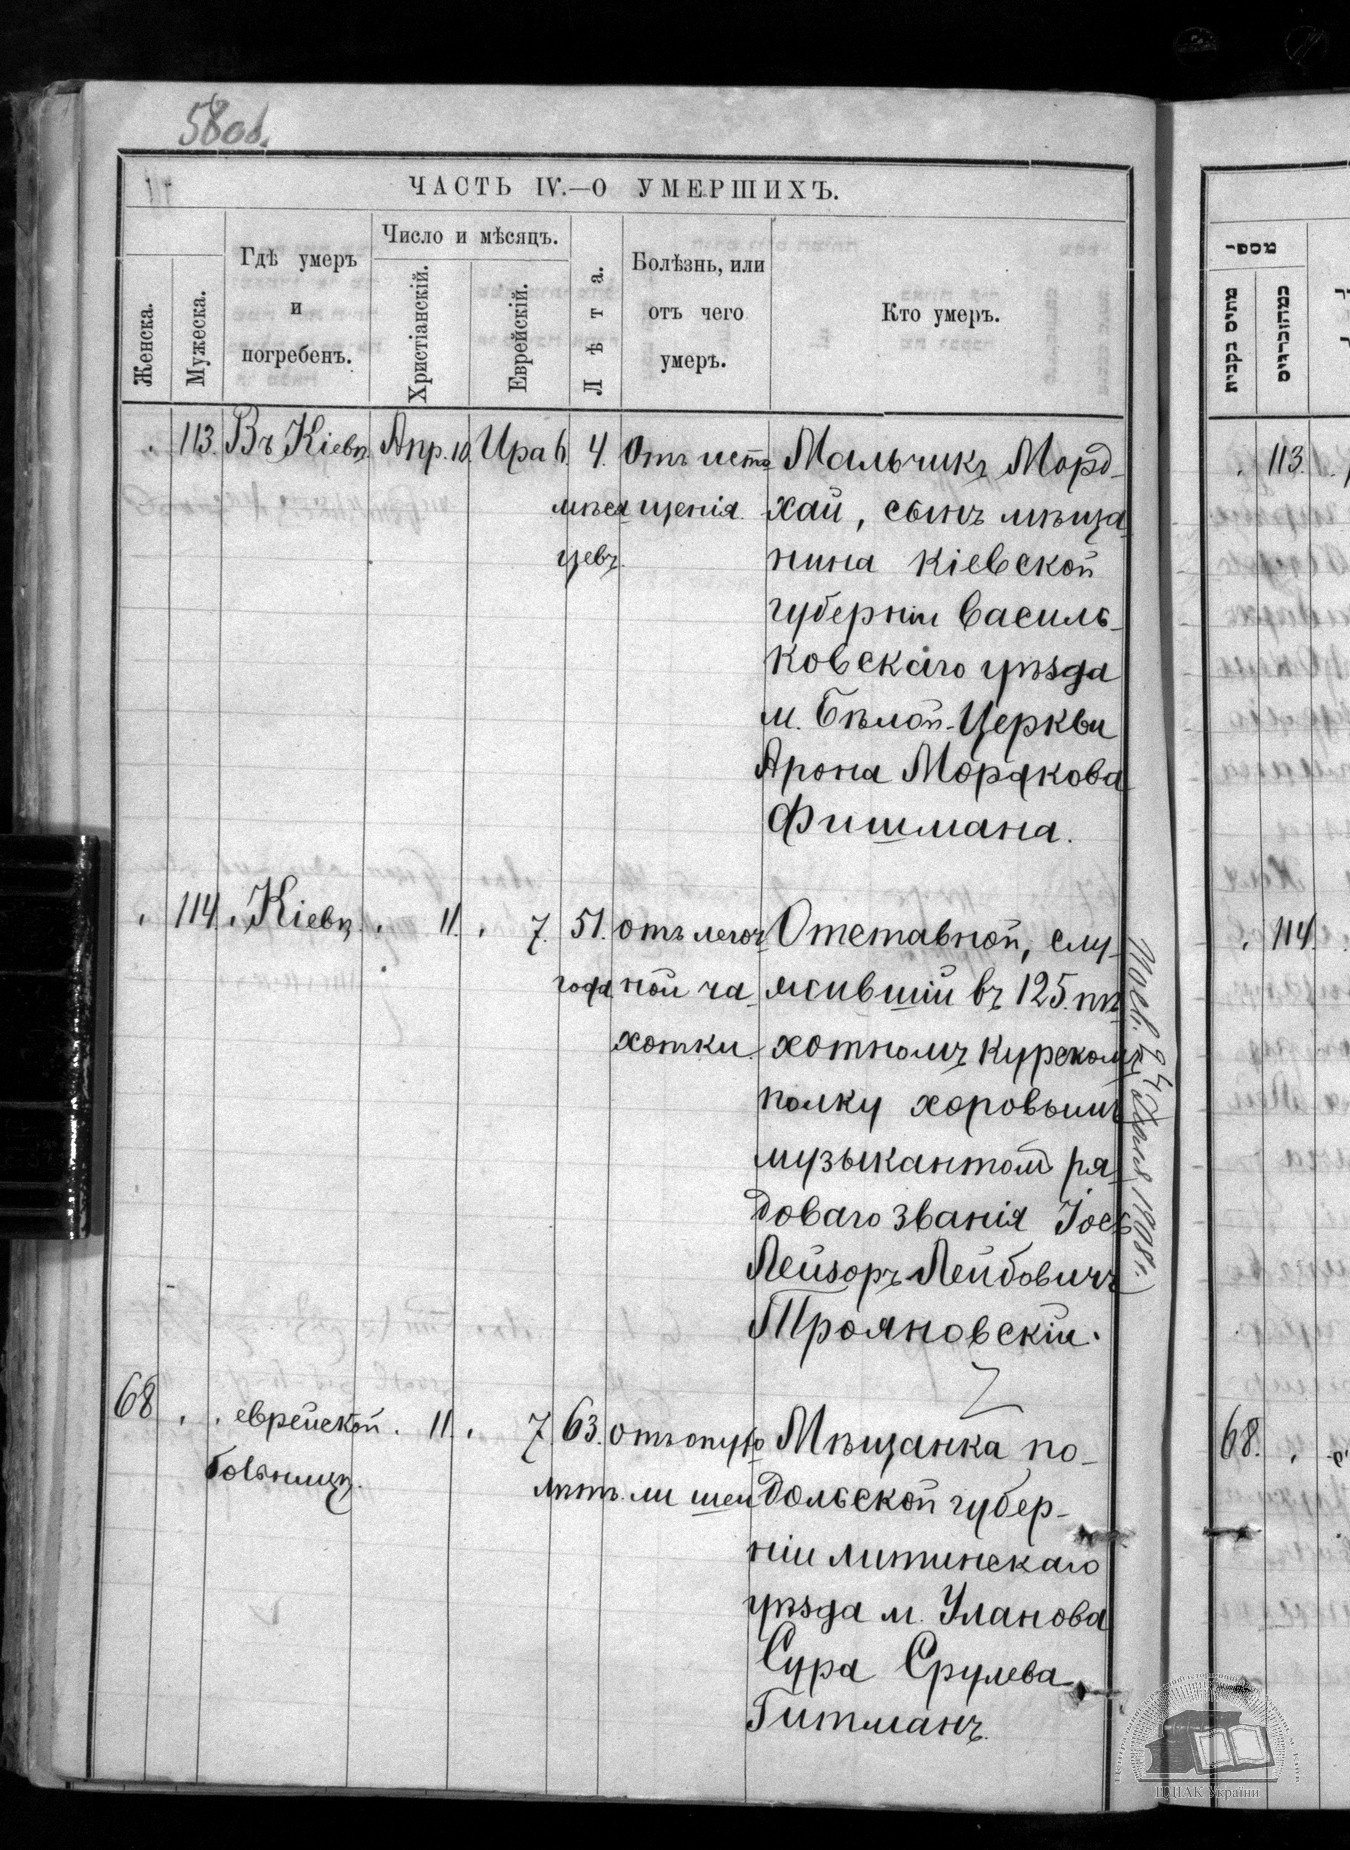 58об.
ЧАСТЬ IV.—О УМЕРШИХЪ.
Женска.
Мужеска.
Гдѣ умеръ
и
погребенъ.
Число и мѣсяцъ.
Христіанскій.
Еврейскій.
Лѣта.
Болѣзнь, или
отъ чего
умеръ.
Кто умеръ.
113. Въ Кіевѣ Апр. 10. Ира 6. 4. Отъ исто Мальчикъ Морд-
мѣся щенія. хай, сынъ мѣща
цевъ. нина Кіевской
губерніи Василь-
ковскаго уѣзда
м. Бѣлой-Церкви
Арона Мордкова
Фишмана.
114. Кіевѣ 11. 7. 51. отъ легоч Отставной, слу-
года ной ча- жившій въ 125. пѣ-
хотки. хотномъ Курскомъ
полку хоровымъ
музыкантомъ ря-
доваго званія Іось
Лейзоръ Лейбовичъ
Трояновскій.
68 еврейской 11. 7. 63. отъ опухо Мѣщанка по-
больницѣ. лѣтъ. ли шеи дольской губер-
ніи литинскаго
уѣзда м. Уланова
Сура Срулева
Гитманъ.
1908 г.
מספר
113.
114.
68.
ЦДІАК України